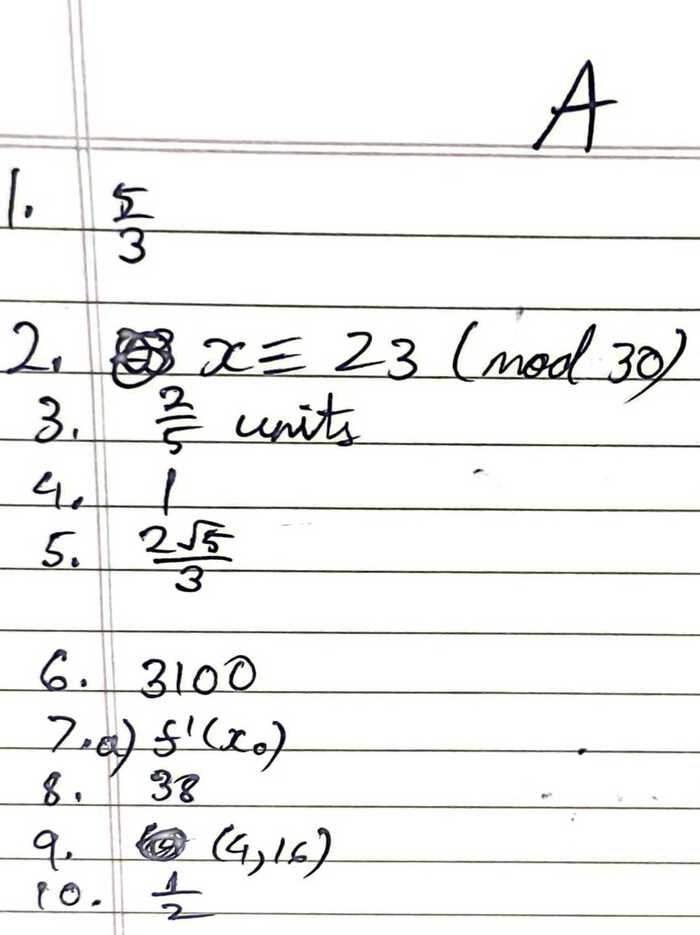 A
1. 5/3
2. x ≡ 23 (mod 30)
3. 2/5 units
4. 1
5. 2√5/3
6. 3100
7.a) f'(x₀)
8. 38
9. (4,16)
10. 1/2